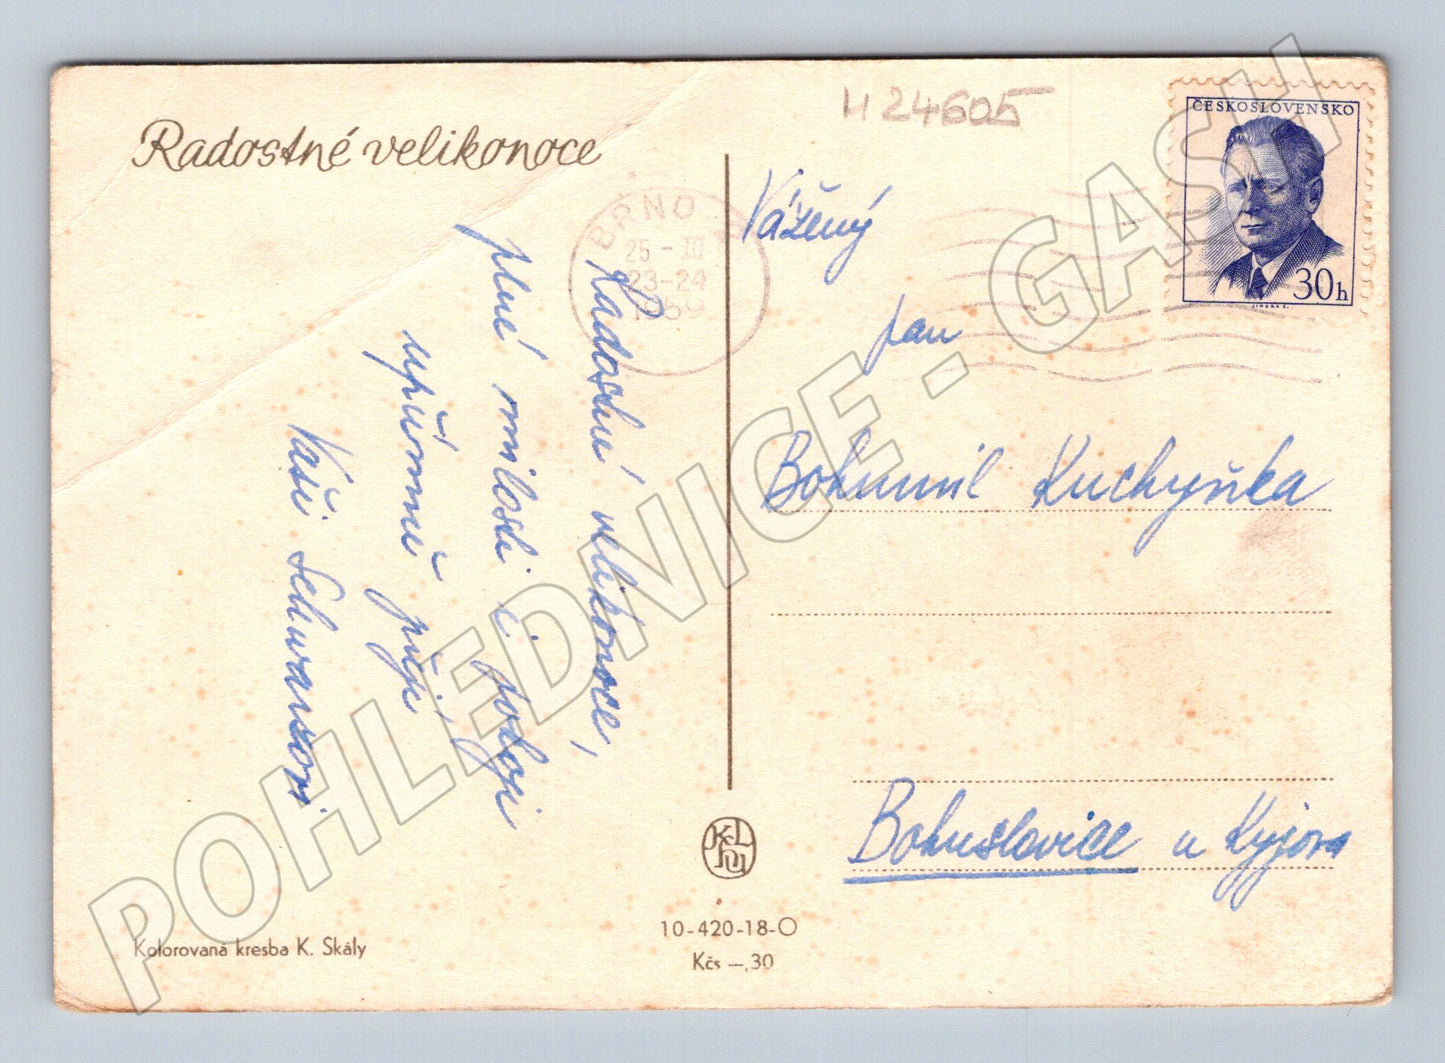 Radostné velikonoce
H 24605
ČESKOSLOVENSKO
30h
BRNO
25 - III
23-24
Radostné velikonoce,
plné milosti i pokoje
upřímně přeje
Vaši
Vážený
pan
Bohumil Kuchyňka
Bohuslovice u Kyjova
10-420-18-O
Kčs —,30
Kolorovaná kresba K. Skály
POHLEDNICE - GASH